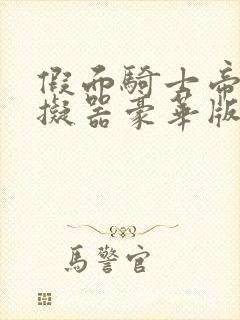 假面騎士帝
擬器豪華版
馬警官